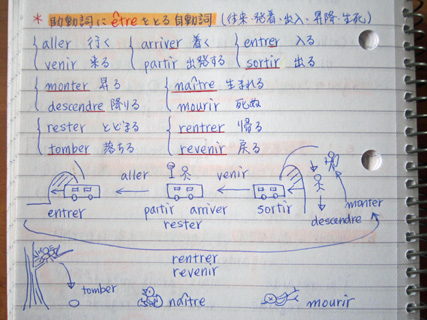 * 助動詞に être をとる自動詞 (往来・発着・出入・昇降・生死)
aller 行く arriver 着く entrer 入る
venir 来る partir 出発する sortir 出る
monter 昇る naître 生まれる
descendre 降りる mourir 死ぬ
rester とどまる rentrer 帰る
tomber 落ちる revenir 戻る
aller venir
entrer partir arriver sortir monter
rester descendre
rentrer
revenir
tomber naître mourir